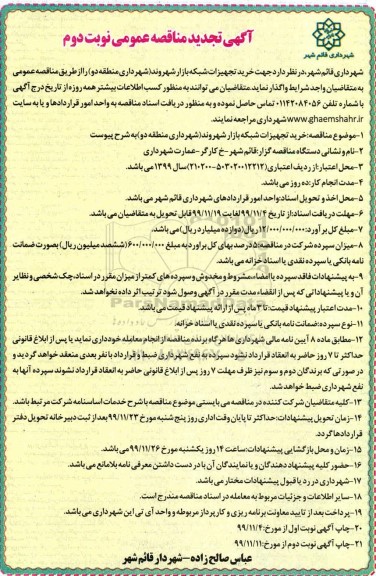 شهرداری قائم شهر
آگهی تجدید مناقصه عمومی نوبت دوم
شهرداری قائم شهر، در نظر دارد جهت خرید تجهیزات شبکه بازار شهروند (شهرداری منطقه دو) را از طریق مناقصه عمومی
به متقاضیان واجد شرایط واگذار نماید. متقاضیان می توانند به منظور کسب اطلاعات بیشتر همه روزه از تاریخ درج آگهی
با شماره تلفن ۰۱۱۴۲۰۸۴۰۵۶ تماس حاصل نموده و به منظور دریافت اسناد مناقصه به واحد امور قراردادها و یا به سایت
www.ghaemshahr.ir شهرداری مراجعه نمایند.
۱-موضوع مناقصه: خرید تجهیزات شبکه بازار شهروند (شهرداری منطقه دو) به شرح پیوست
۲-نام و نشانی دستگاه مناقصه گزار: قائم شهر-خ کارگر-عمارت شهرداری
۳-محل اعتبار: از ردیف اعتباری (۵۰۳۰۲۰۰۱۲۲۱۲-۲۱۰۲۰۰) سال ۱۳۹۹ می باشد.
۴-مدت انجام کار: ده روز می باشد.
۵-محل اخذ و تحویل اسناد: واحد امور قراردادهای شهرداری قائم شهر می باشد.
۶-مهلت دریافت اسناد: از تاریخ ۹۹/۱۱/۴ لغایت ۹۹/۱۱/۱۹ قابل تحویل به متقاضیان می باشد.
۷-مبلغ کل برآورد: ۱۲/۰۰۰/۰۰۰/۰۰۰ ریال (دوازده میلیارد ریال) می باشد.
۸-میزان سپرده شرکت در مناقصه: ۵ درصد بهای کل برآورد به مبلغ ۶۰۰/۰۰۰/۰۰۰ (ششصد میلیون ریال) بصورت ضمانت
نامه بانکی یا سپرده نقدی یا اسناد خزانه می باشد.
۹-به پیشنهادات فاقد سپرده یا امضاء، مشروط و مخدوش و سپرده های کمتر از میزان مقرر در اسناد، چک شخصی و نظایر
آن و یا پیشنهاداتی که پس از انقضاء مدت مقرر در آگهی وصول شود ترتیب اثر داده نخواهد شد.
۱۰-مدت اعتبار پیشنهاد قیمت: تا ۳ ماه پس از ارائه پیشنهاد قیمت می باشد.
۱۱-نوع سپرده: ضمانت نامه بانکی یا سپرده نقدی یا اسناد خزانه.
۱۲-مطابق ماده ۸ آیین نامه مالی شهرداری ها هرگاه برنده مناقصه از انجام معامله خودداری نماید یا پس از ابلاغ قانونی
حداکثر تا ۷ روز حاضر به انعقاد قرارداد نشود سپرده به نفع شهرداری ضبط و قرارداد با نفر بعدی منعقد خواهد گردید و
در صورتی که برندگان دوم و سوم نیز ظرف مهلت ۷ روز پس از ابلاغ قانونی حاضر به انعقاد قرارداد نشوند سپرده آنها به
نفع شهرداری ضبط خواهد شد.
۱۳-کلیه متقاضیان شرکت کننده در مناقصه می بایستی موضوع مناقصه با شرح خدمات اساسنامه شرکت مرتبط باشد.
۱۴-زمان تحویل پیشنهادات: حداکثر تا پایان وقت اداری روز پنج شنبه مورخ ۹۹/۱۱/۲۳ بعد از ثبت دبیرخانه تحویل دفتر
قراردادها گردد.
۱۵-زمان و محل بازگشایی پیشنهادات: ساعت ۱۴ روز یکشنبه مورخ ۹۹/۱۱/۲۶ می باشد.
۱۶-حضور کلیه پیشنهاد دهندگان و یا نمایندگان آن با در دست داشتن معرفی نامه بلامانع می باشد.
۱۷-شهرداری در رد یا قبول پیشنهادات مختار می باشد.
۱۸-سایر اطلاعات و جزئیات مربوط به معامله در اسناد مناقصه مندرج است.
۱۹-پرداخت بعد از تایید معاونت برنامه ریزی و کارپرداز مربوطه و واحد آی تی این شهرداری می باشد.
۲۰-چاپ آگهی نوبت اول از مورخ: ۹۹/۱۱/۴
۲۱-چاپ آگهی نوبت دوم از مورخ: ۹۹/۱۱/۱۱
عباس صالح زاده-شهردار قائم شهر